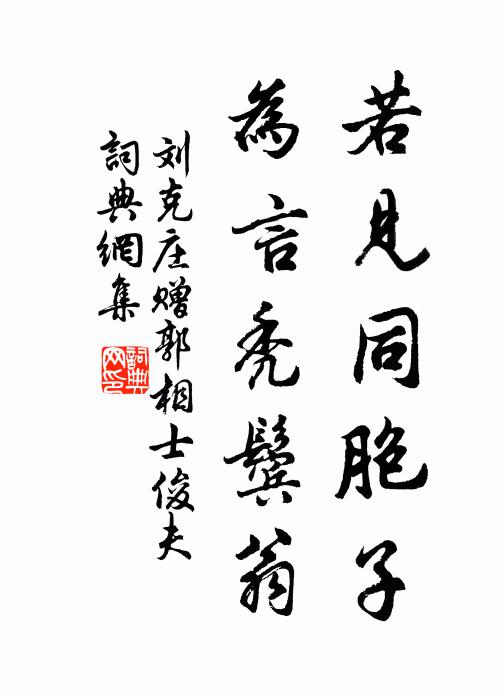 若见同胞子
為言秃鬓翁
刘克庄赠郭相士俊夫
詞典網集
詞典网印